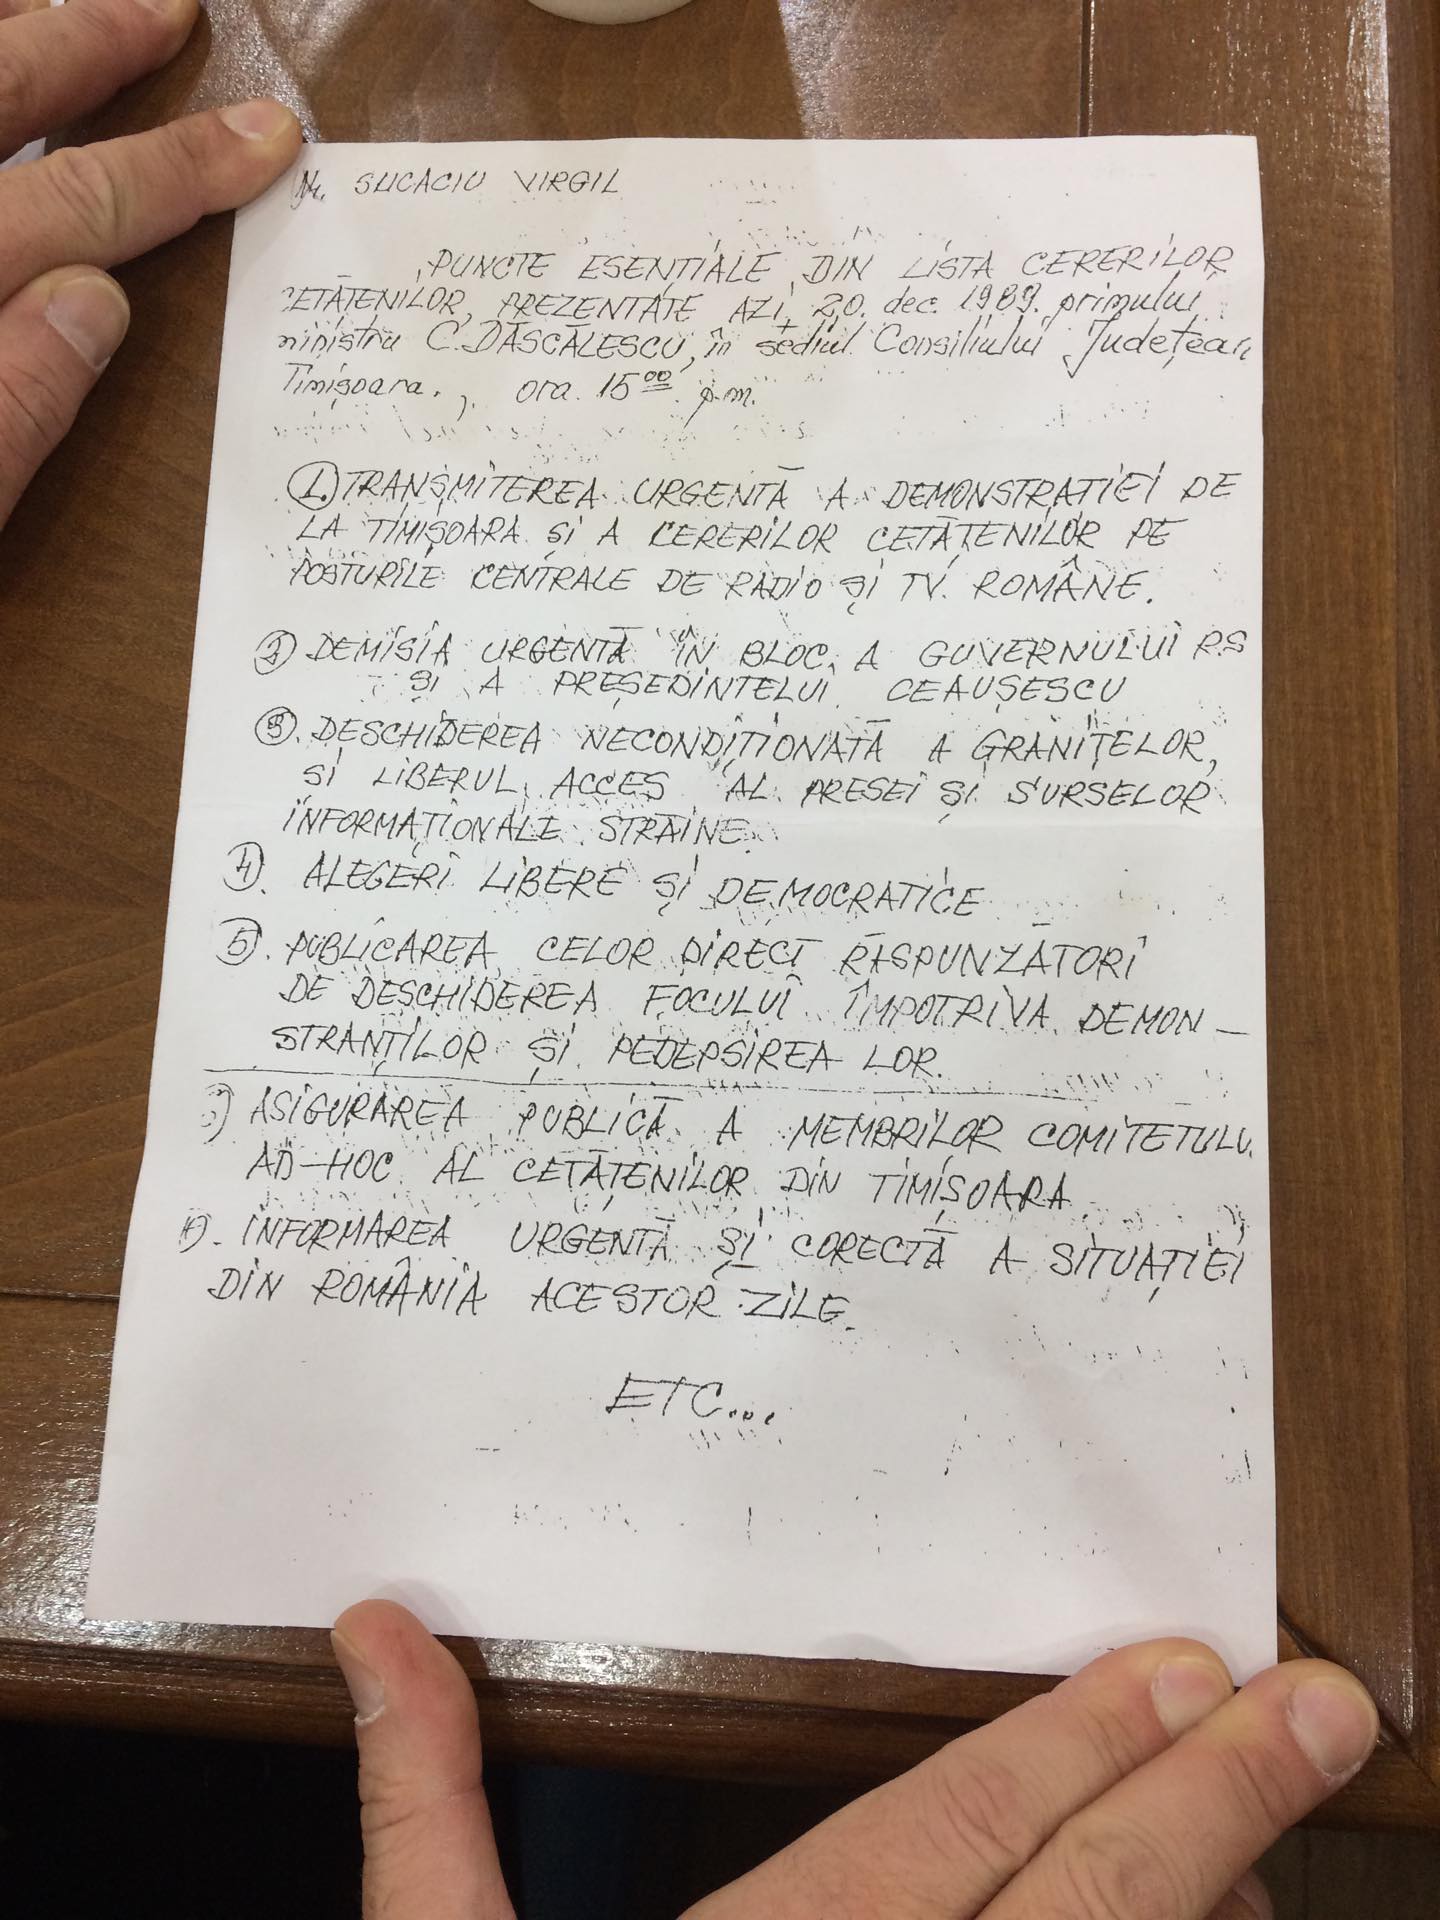 SUCACIU VIRGIL
PUNCTE ESENȚIALE, DIN LISTA CERERILOR
CETĂȚENILOR, PREZENTATE AZI, 20. dec. 1989. primului
ministru C. DĂSCĂLESCU, în sediul Consiliului Județean
Timișoara., ora 15⁰⁰ p.m.
1. TRANSMITEREA URGENTĂ A DEMONSTRAȚIEI DE
LA TIMIȘOARA ȘI A CERERILOR CETĂȚENILOR PE
POSTURILE CENTRALE DE RADIO ȘI TV. ROMÂNE.
2 DEMISIA URGENTĂ ÎN BLOC, A GUVERNULUI RS
ȘI A PREȘEDINTELUI CEAUȘESCU
3. DESCHIDEREA NECONDIȚIONATĂ A GRANIȚELOR,
ȘI LIBERUL ACCES AL PRESEI ȘI SURSELOR
INFORMAȚIONALE STRĂINE.
4. ALEGERI LIBERE ȘI DEMOCRATICE
5. PUBLICAREA CELOR DIRECT RĂSPUNZĂTORI
DE DESCHIDEREA FOCULUI ÎMPOTRIVA DEMON-
STRANȚILOR ȘI PEDEPSIREA LOR.
ASIGURAREA PUBLICĂ A MEMBRILOR COMITETULU
AD-HOC AL CETĂȚENILOR DIN TIMIȘOARA
INFORMAREA URGENTĂ ȘI CORECTĂ A SITUAȚIEI
DIN ROMÂNIA ACESTOR ZILE.
ETC...